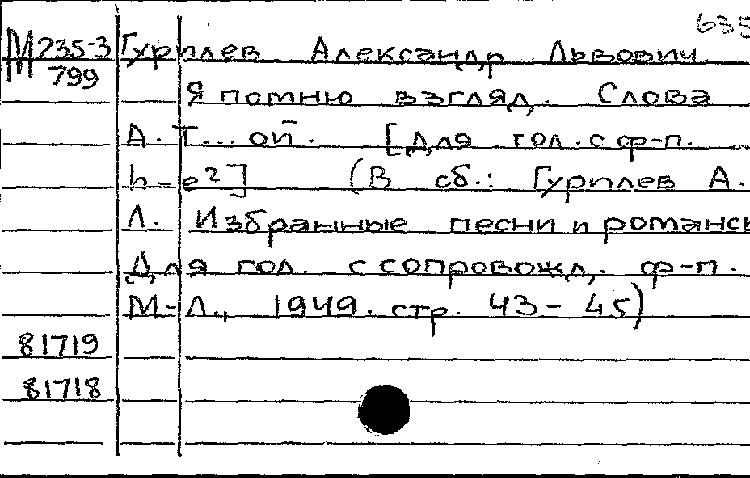 635
М 235-3 Гурилев Александр Львович.
799 Я помню взгляд. Слова
А. Т...ой. [Для гол. с ф-п.
h-e²] (В сб.: Гурилев А.
Л. Избранные песни и романсы
Для гол. с сопровожд. ф-п.
М-Л., 1949. стр. 43-45)
81719
81718